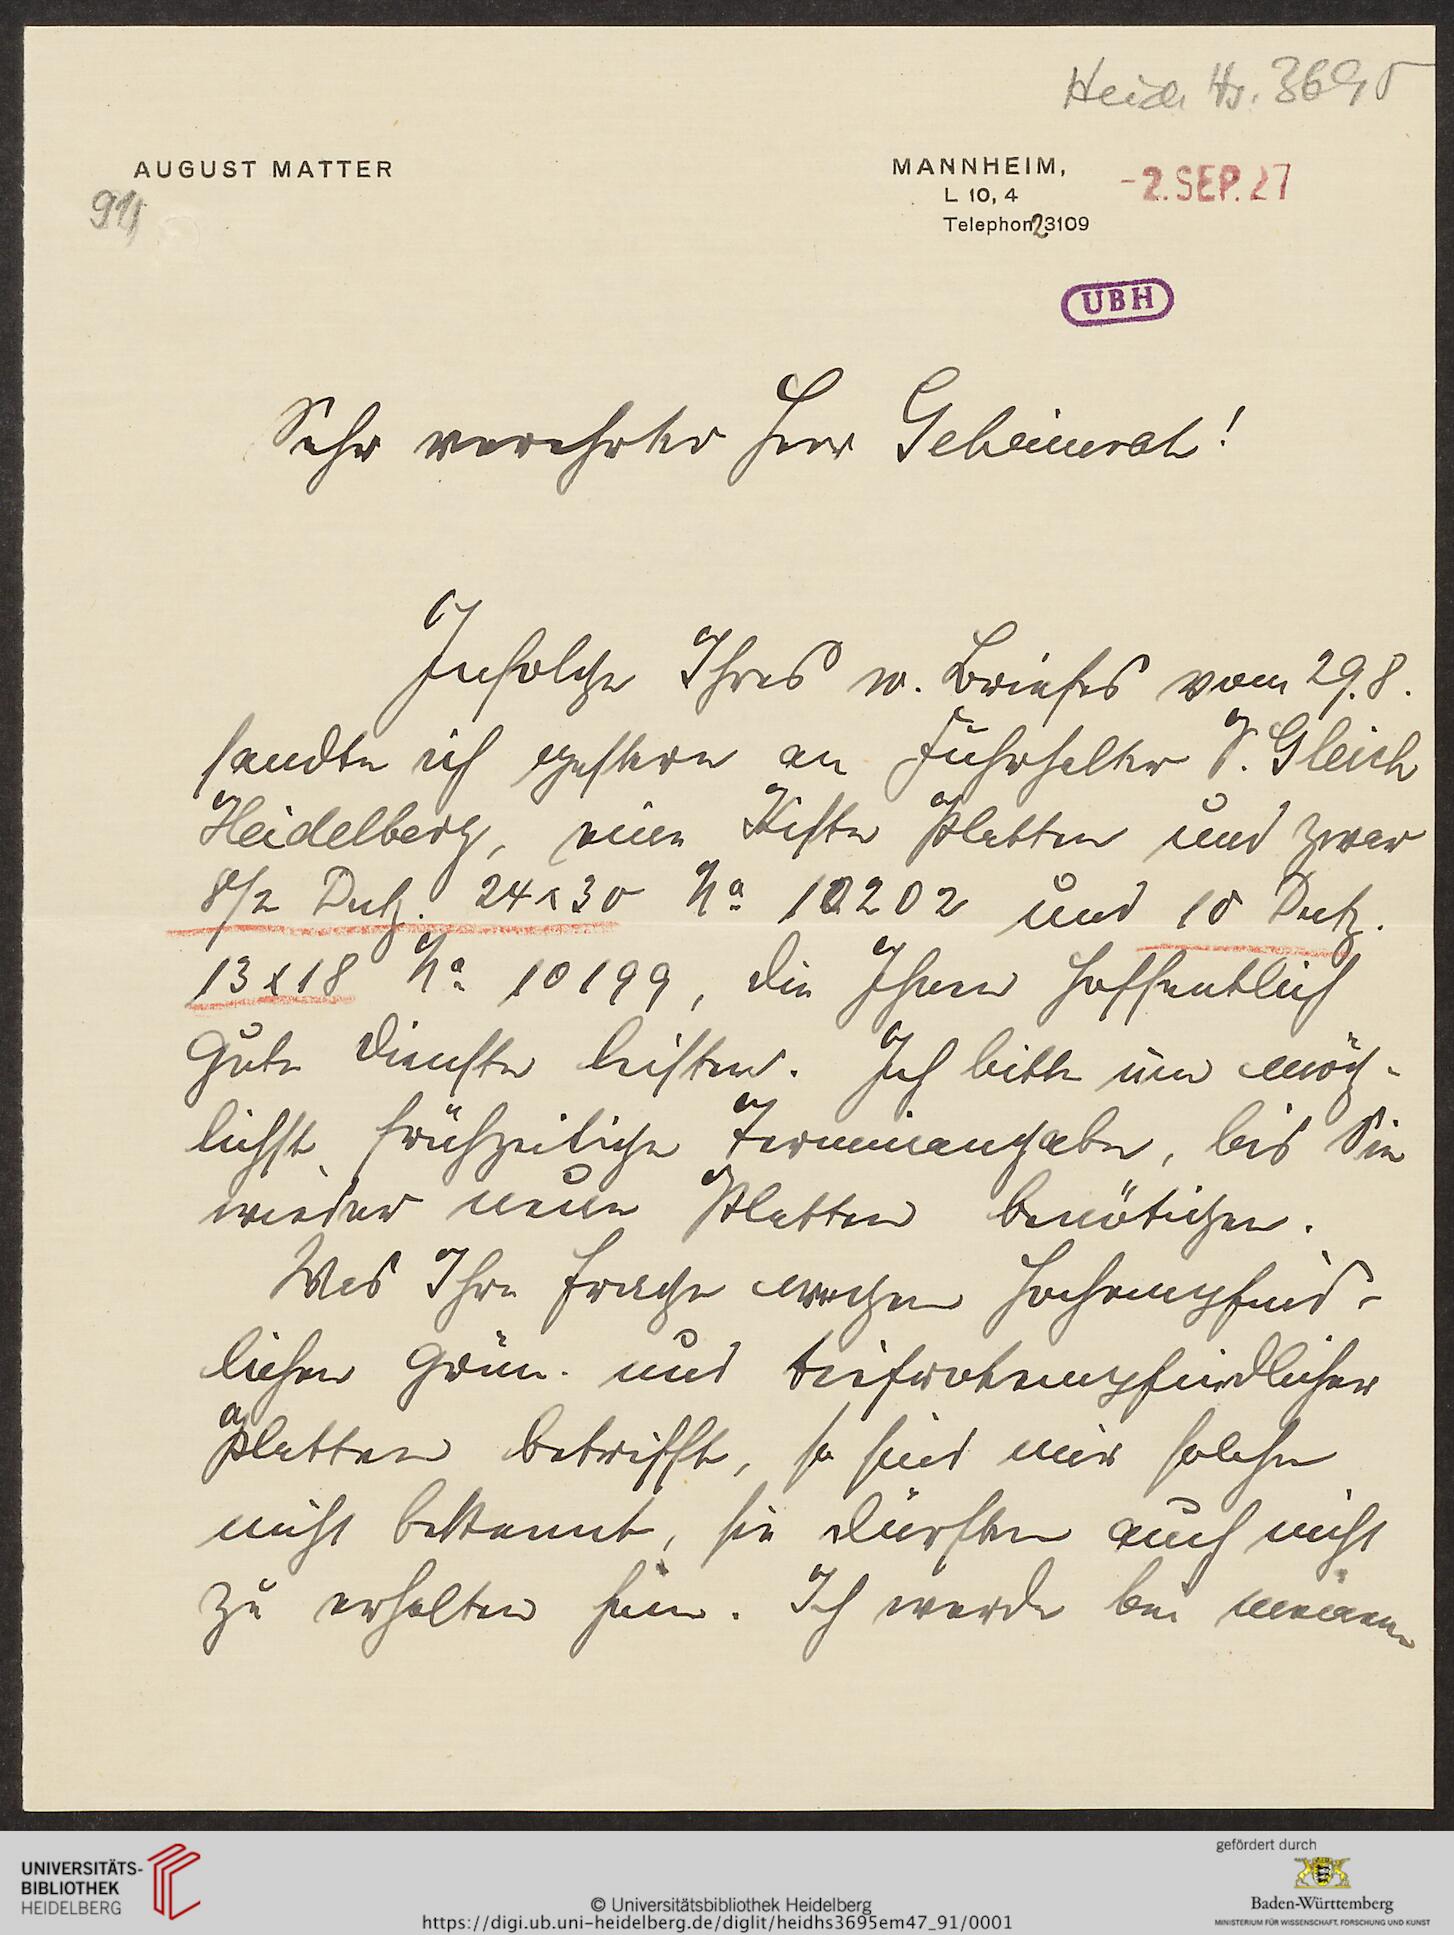 Heid. Hs. 3695
AUGUST MATTER
MANNHEIM,
-2. SEP. 27
L 10, 4
Telephon 23109
91
UBH
Sehr verehrter Herr Geheimrat!
Infolge Ihres w. Briefes vom 29.8.
sandte ich gestern an Fuhrhalter V. Gleich
Heidelberg, eine Kiste Platten und zwar
8/2 Dutz. 24x30 No 10202 und 10 Dutz.
13x18 No 10199, die Ihnen hoffentlich
gute Dienste leisten. Ich bitte um mög-
lichst frühzeitige Terminangabe, bis Sie
wieder neue Platten benötigen.
Was Ihre Frage wegen hochempfind-
lichen grün- und tiefrotempfindlicher
Platten betrifft, so sind mir solche
nicht bekannt, sie dürften auch nicht
zu erhalten sein. Ich werde bei meinem
UNIVERSITÄTS-
BIBLIOTHEK
HEIDELBERG
© Universitätsbibliothek Heidelberg
https://digi.ub.uni-heidelberg.de/diglit/heidhs3695em47_91/0001
gefördert durch
Baden-Württemberg
MINISTERIUM FÜR WISSENSCHAFT, FORSCHUNG UND KUNST